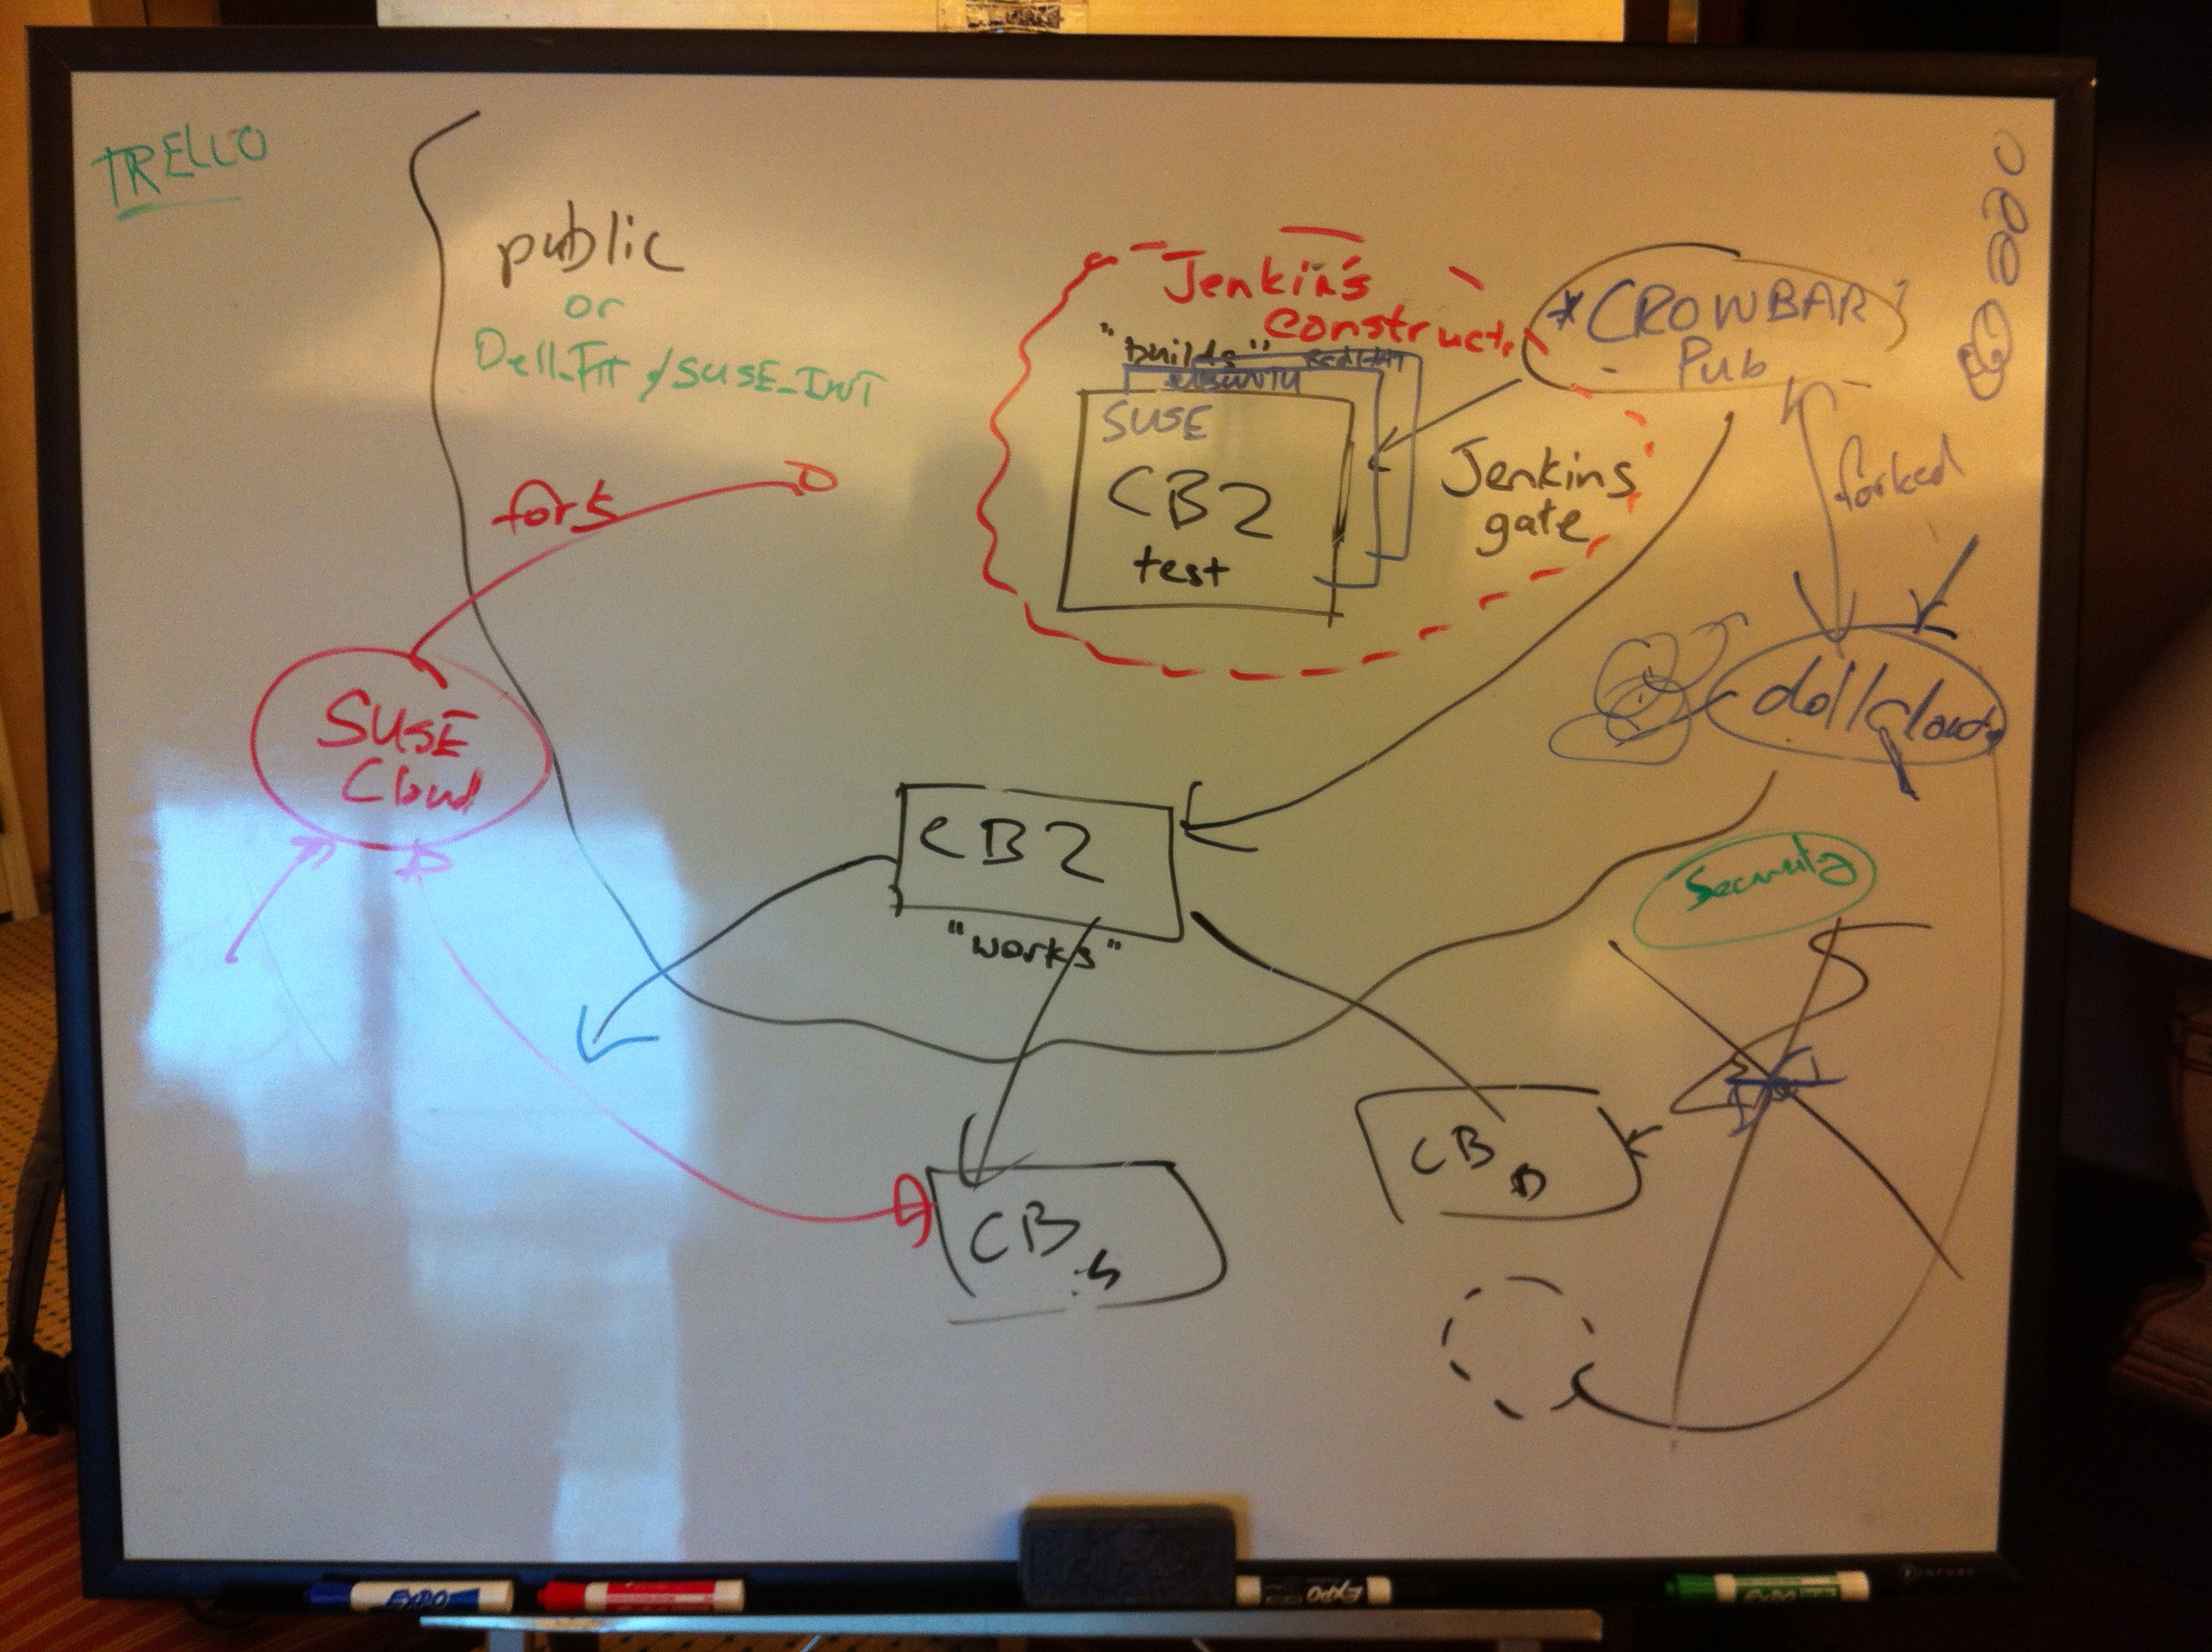 TRELLO
public
or
Dell_Int / SUSE_INT
Jenkin's
construct
"builds"
REDHAT
UBUNTU
SUSE
CB2
test
*CROWBAR
Pub
Jenkins
gate
forked
fork
SUSE
Cloud
dellcloud
CB2
"works"
Security
CB D
CB S
EXPO
EXPO
EXPO